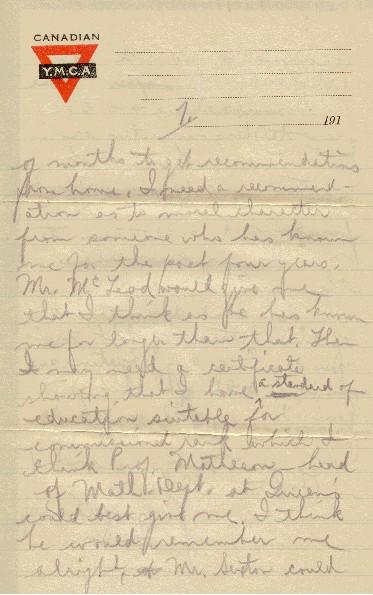 CANADIAN
Y.M.C.A.
191
of months to get recommendations
from home. I need a recommend-
ation as to moral character
from someone who has known
me for the past four years.
Mr. McLeod would give me
that I think as he has known
me for longer than that. Then
I may need a certificate
showing that I have a standard of
education suitable for
commissioned rank which I
think Prof. Matheson - head
of Math. Dept. at Queen's
could best give me. I think
he would remember me
alright, or Mr. Sexton could